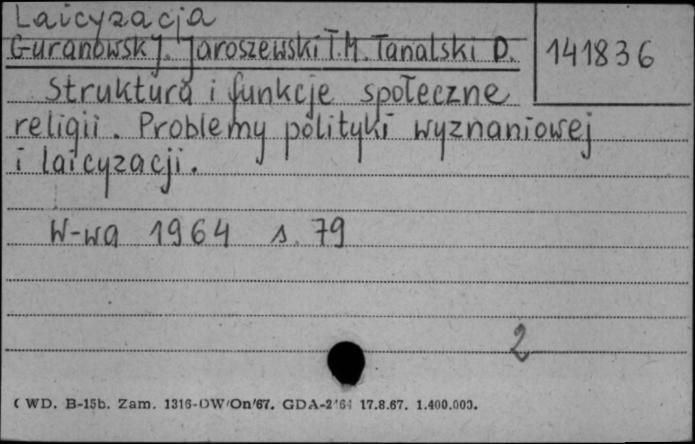 Laicyzacja
Guranowsk J. Jaroszewski T.M. Tanalski D.
141836
Struktura i funkcje społeczne
religii. Problemy polityki wyznaniowej
i laicyzacji.
W-wa 1964 s. 79
2
WD. B-15b. Zam. 1316-DW/On/67. GDA-2161 17.8.67. 1.400.000.